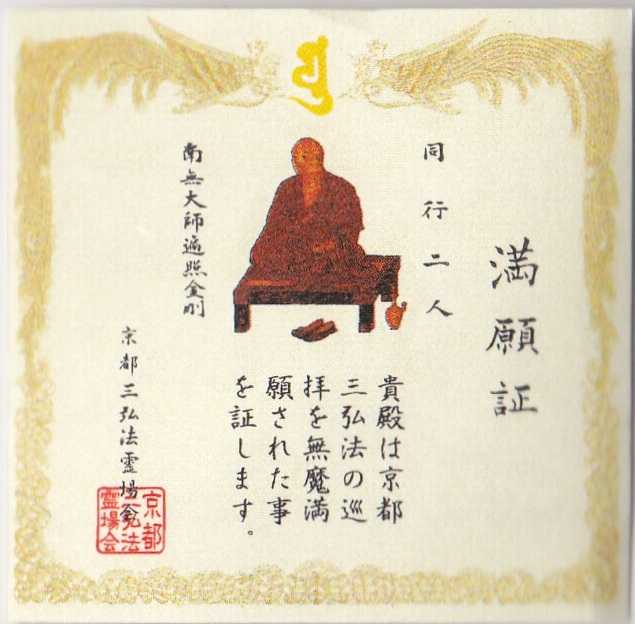 満願証
同行二人
貴殿は京都
三弘法の巡
拝を無魔満
願された事
を証します。
南無大師遍照金剛
京都三弘法霊場会
京都
三弘法
霊場会